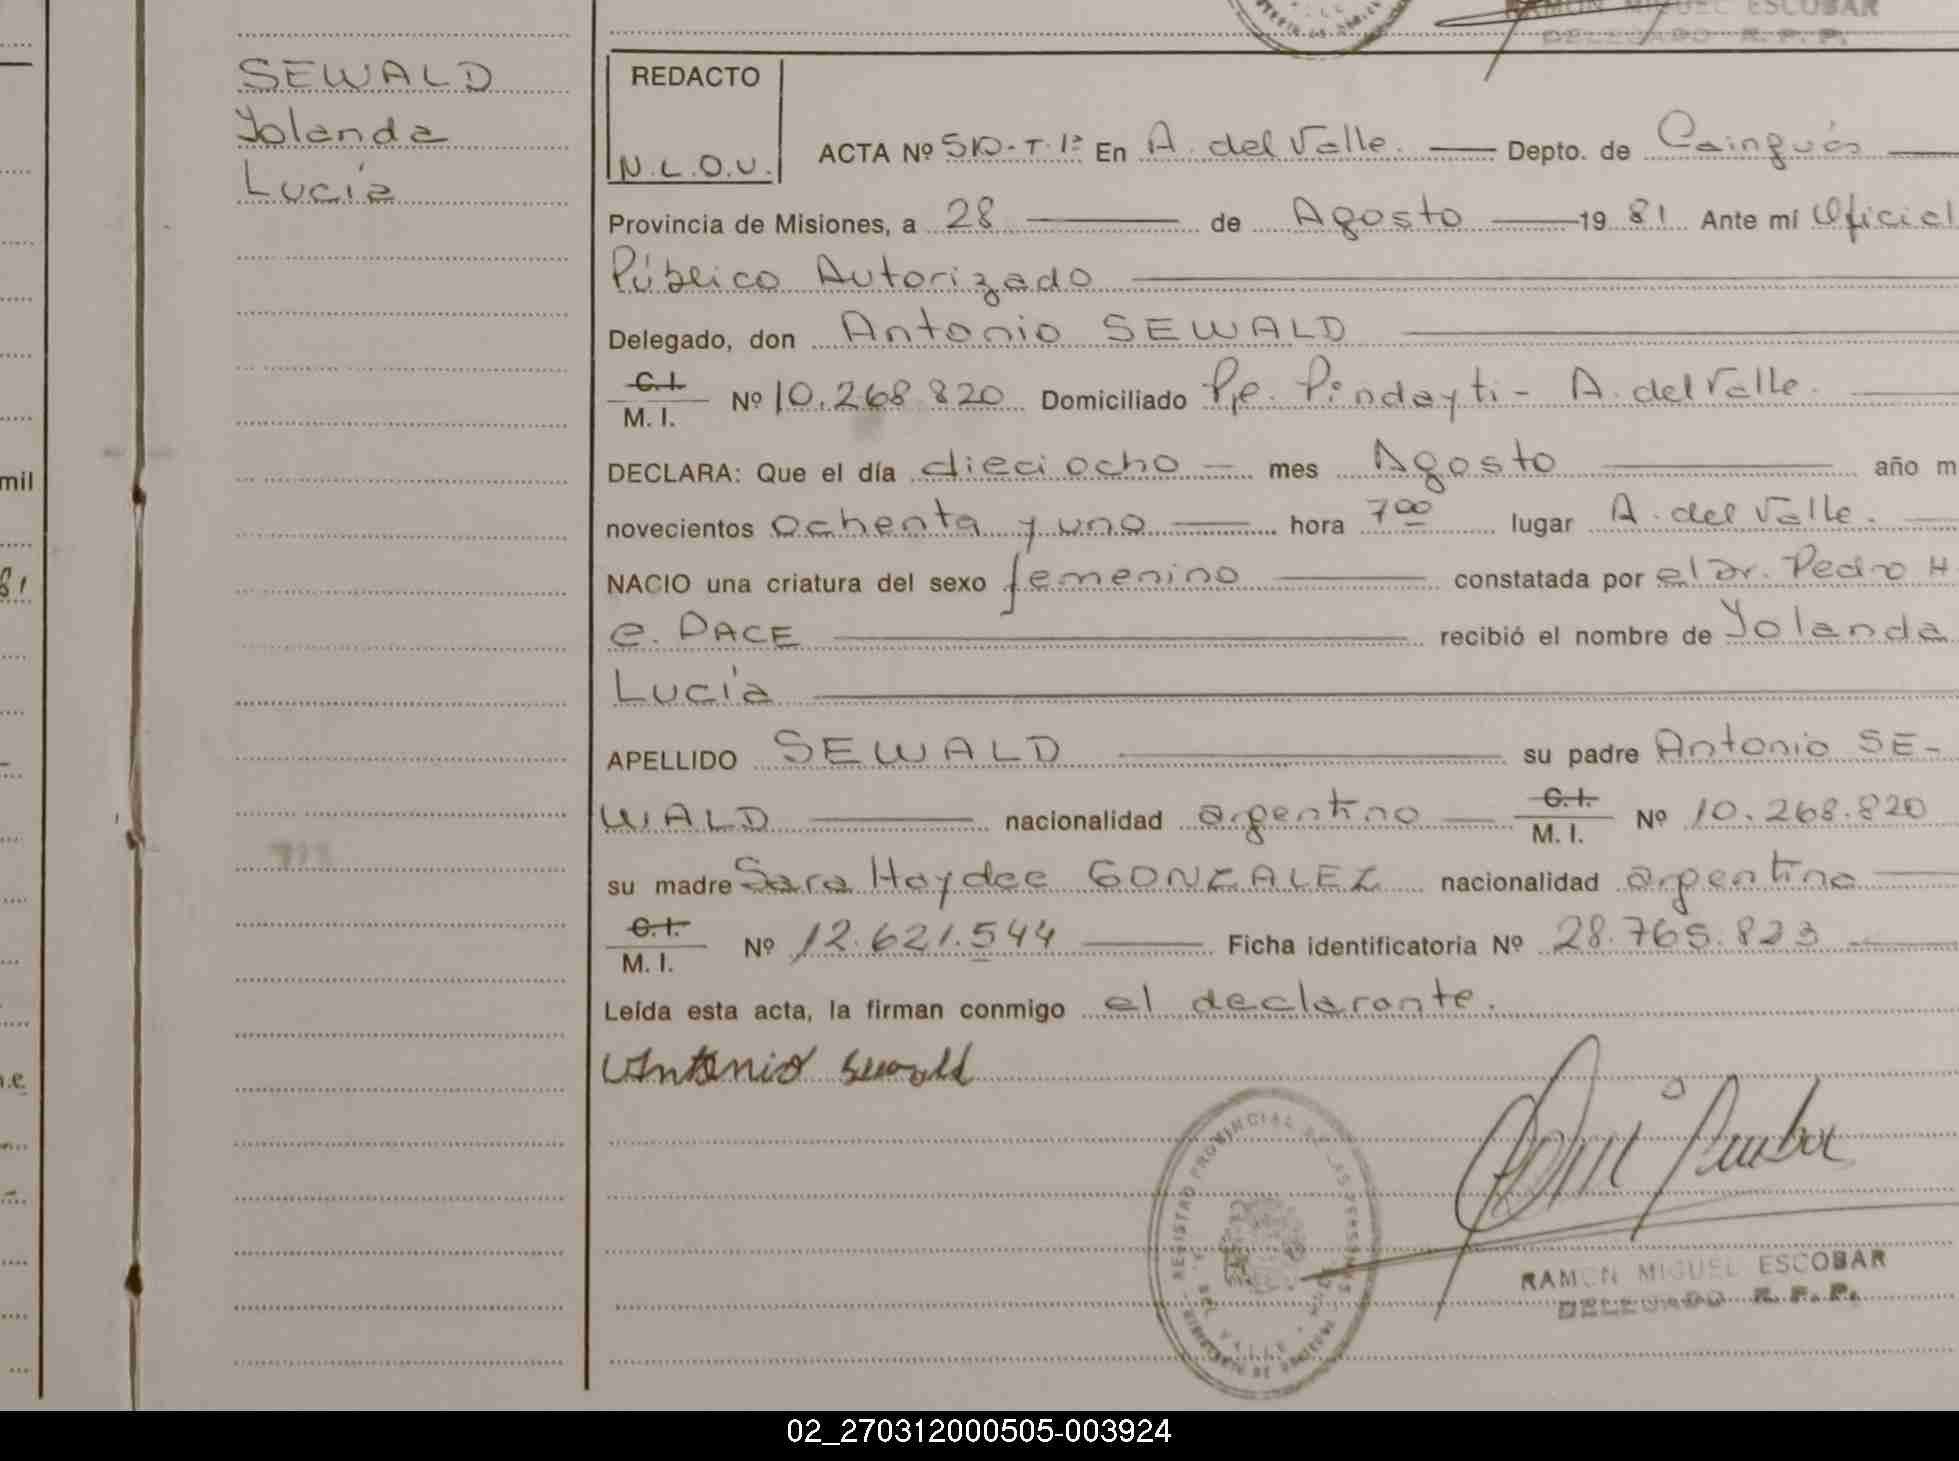 RAMON MIGUEL ESCOBAR
DELEGADO R. P. P.
SEWALD
Yolanda
Lucía
mil
81
REDACTO
N.L.O.U.
ACTA Nº 510-T-1ª En A. del Valle. Depto. de Cainguás
Provincia de Misiones, a 28 de Agosto 1981 Ante mí Oficial
Público Autorizado
Delegado, don Antonio SEWALD
C.I.
M. I. Nº 10.268.820 Domiciliado Pje. Pindayti - A. del Valle.
DECLARA: Que el día dieciocho mes Agosto año m
novecientos ochenta y uno hora 7⁰⁰ lugar A. del Valle.
NACIO una criatura del sexo femenino constatada por el Dr. Pedro H.
e. DACE recibió el nombre de Yolanda
Lucía
APELLIDO SEWALD su padre Antonio SE-
WALD nacionalidad argentino C.I.
M. I. Nº 10.268.820
su madre Sara Haydee GONZALEZ nacionalidad argentina
C.I.
M. I. Nº 12.621.544 Ficha identificatoria Nº 28.765.823
Leída esta acta, la firman conmigo el declarante.
Antonio Sewald
REGISTRO PROVINCIAL DE LAS PERSONAS
DEL VALLE
MINISTERIO DE GOBIERNO
RAMON MIGUEL ESCOBAR
DELEGADO R. P. P.
02_270312000505-003924